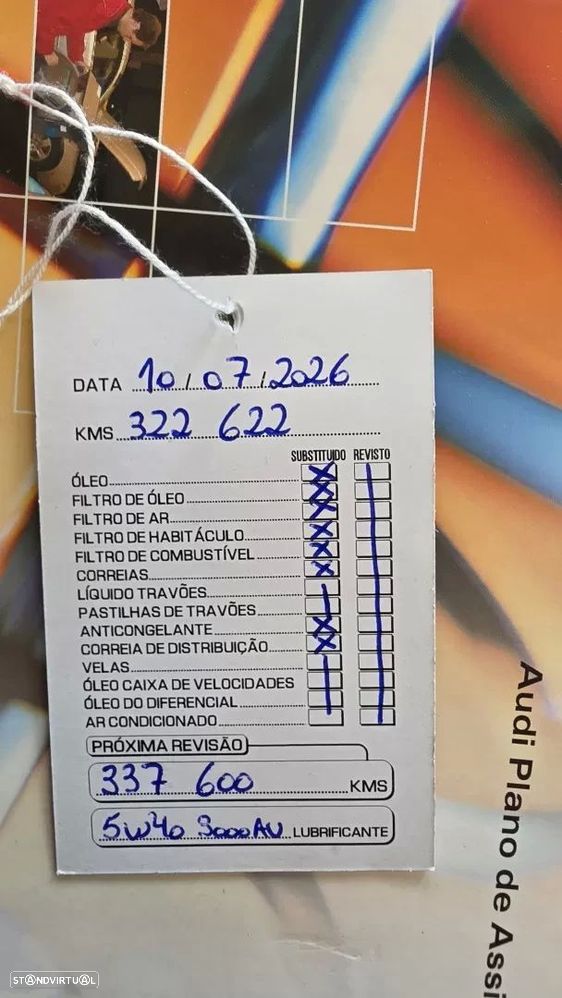 DATA 10/07/2026
KMS 322 622
SUBSTITUIDO REVISTO
ÓLEO
FILTRO DE ÓLEO
FILTRO DE AR
FILTRO DE HABITÁCULO
FILTRO DE COMBUSTÍVEL
CORREIAS
LÍQUIDO TRAVÕES
PASTILHAS DE TRAVÕES
ANTICONGELANTE
CORREIA DE DISTRIBUIÇÃO
VELAS
ÓLEO CAIXA DE VELOCIDADES
ÓLEO DO DIFERENCIAL
AR CONDICIONADO
PRÓXIMA REVISÃO
337 600 KMS
5W40 LUBRIFICANTE
Audi Plano de Assi
STANDVIRTUAL